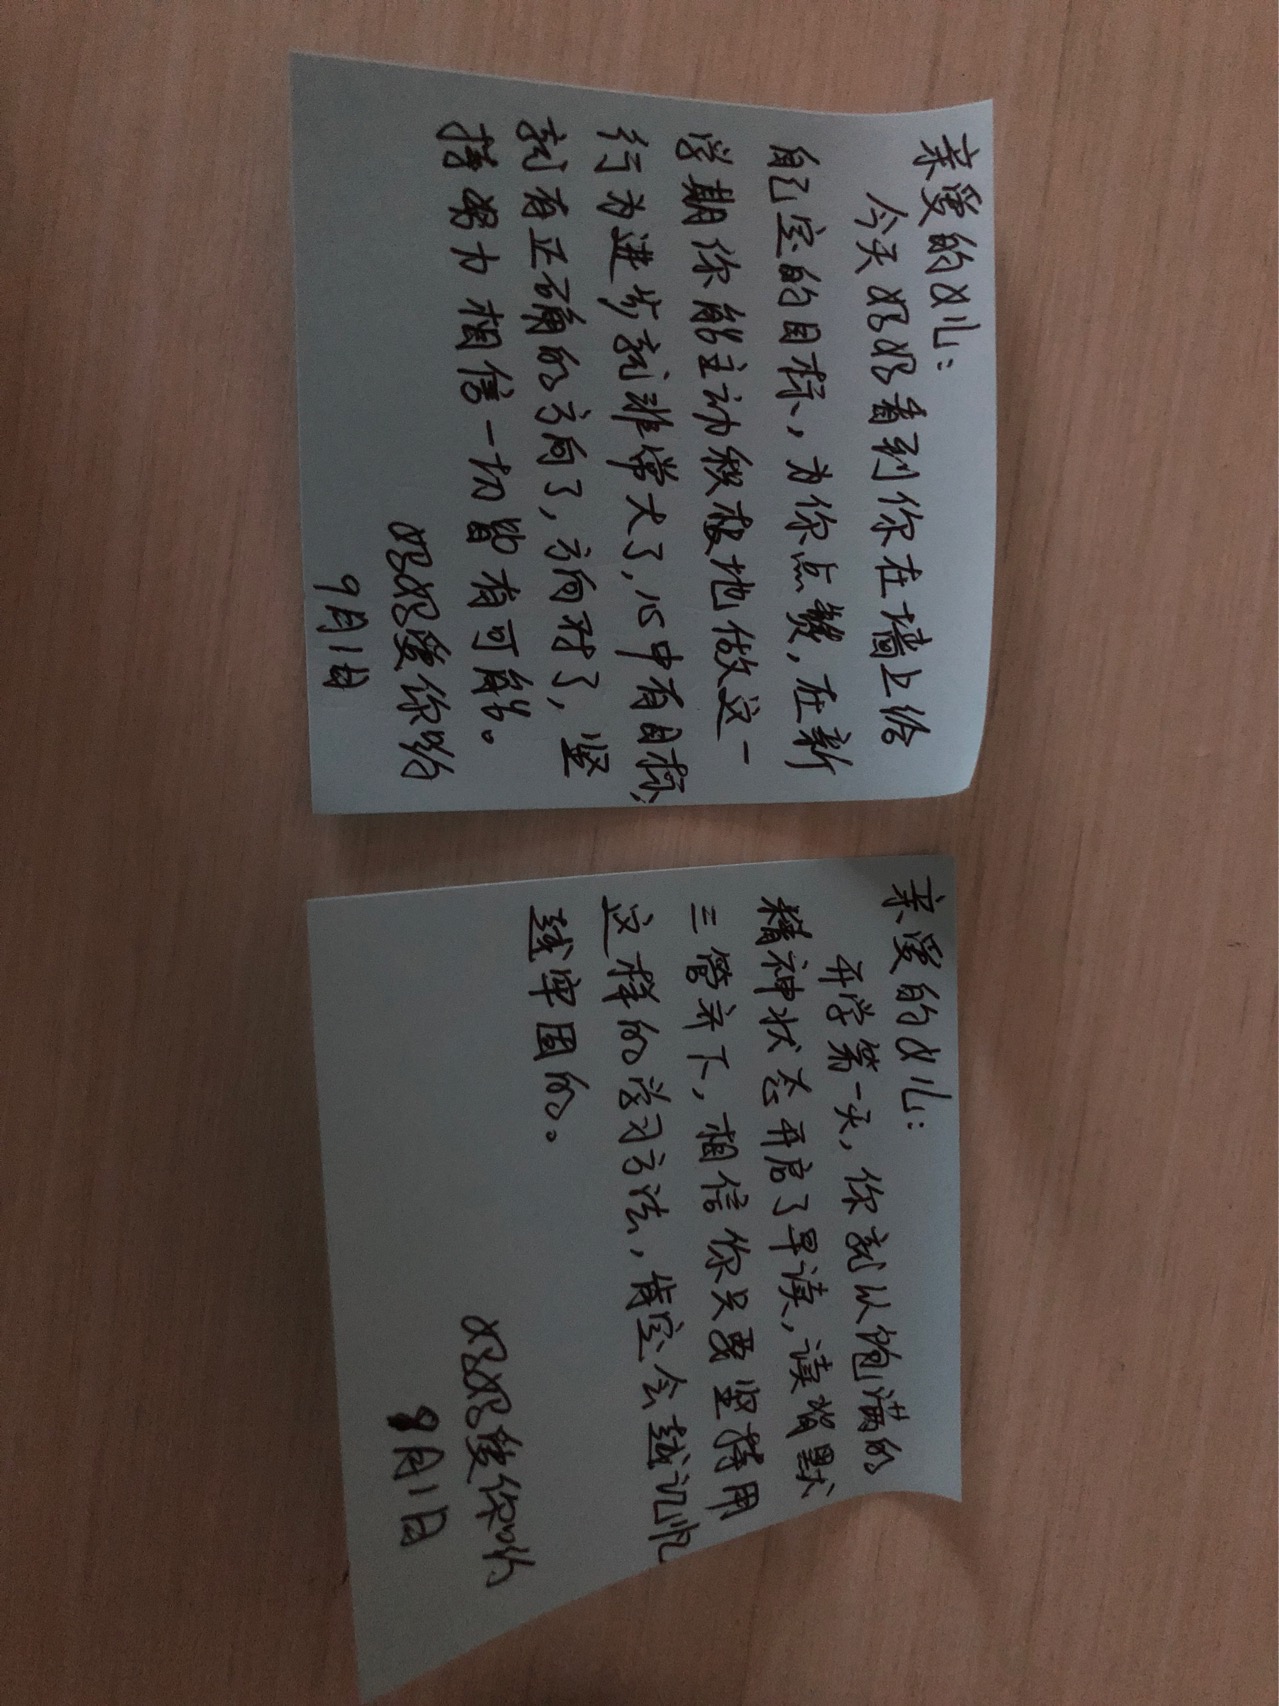 亲爱的女儿：
今天妈妈看到你在墙上给
自己定的目标，为你点赞，在新
学期你能主动积极地做这一
行为进步就非常大了，心中有目标，
就有正确的方向了，方向对了，坚
持努力相信一切皆有可能。
妈妈爱你哟
9月1日
亲爱的女儿：
开学第一天，你就以饱满的
精神状态开启了早读，读背默
三管齐下，相信你只要坚持用
这样的学习方法，肯定会越记忆
越牢固的。
妈妈爱你哟
9月1日